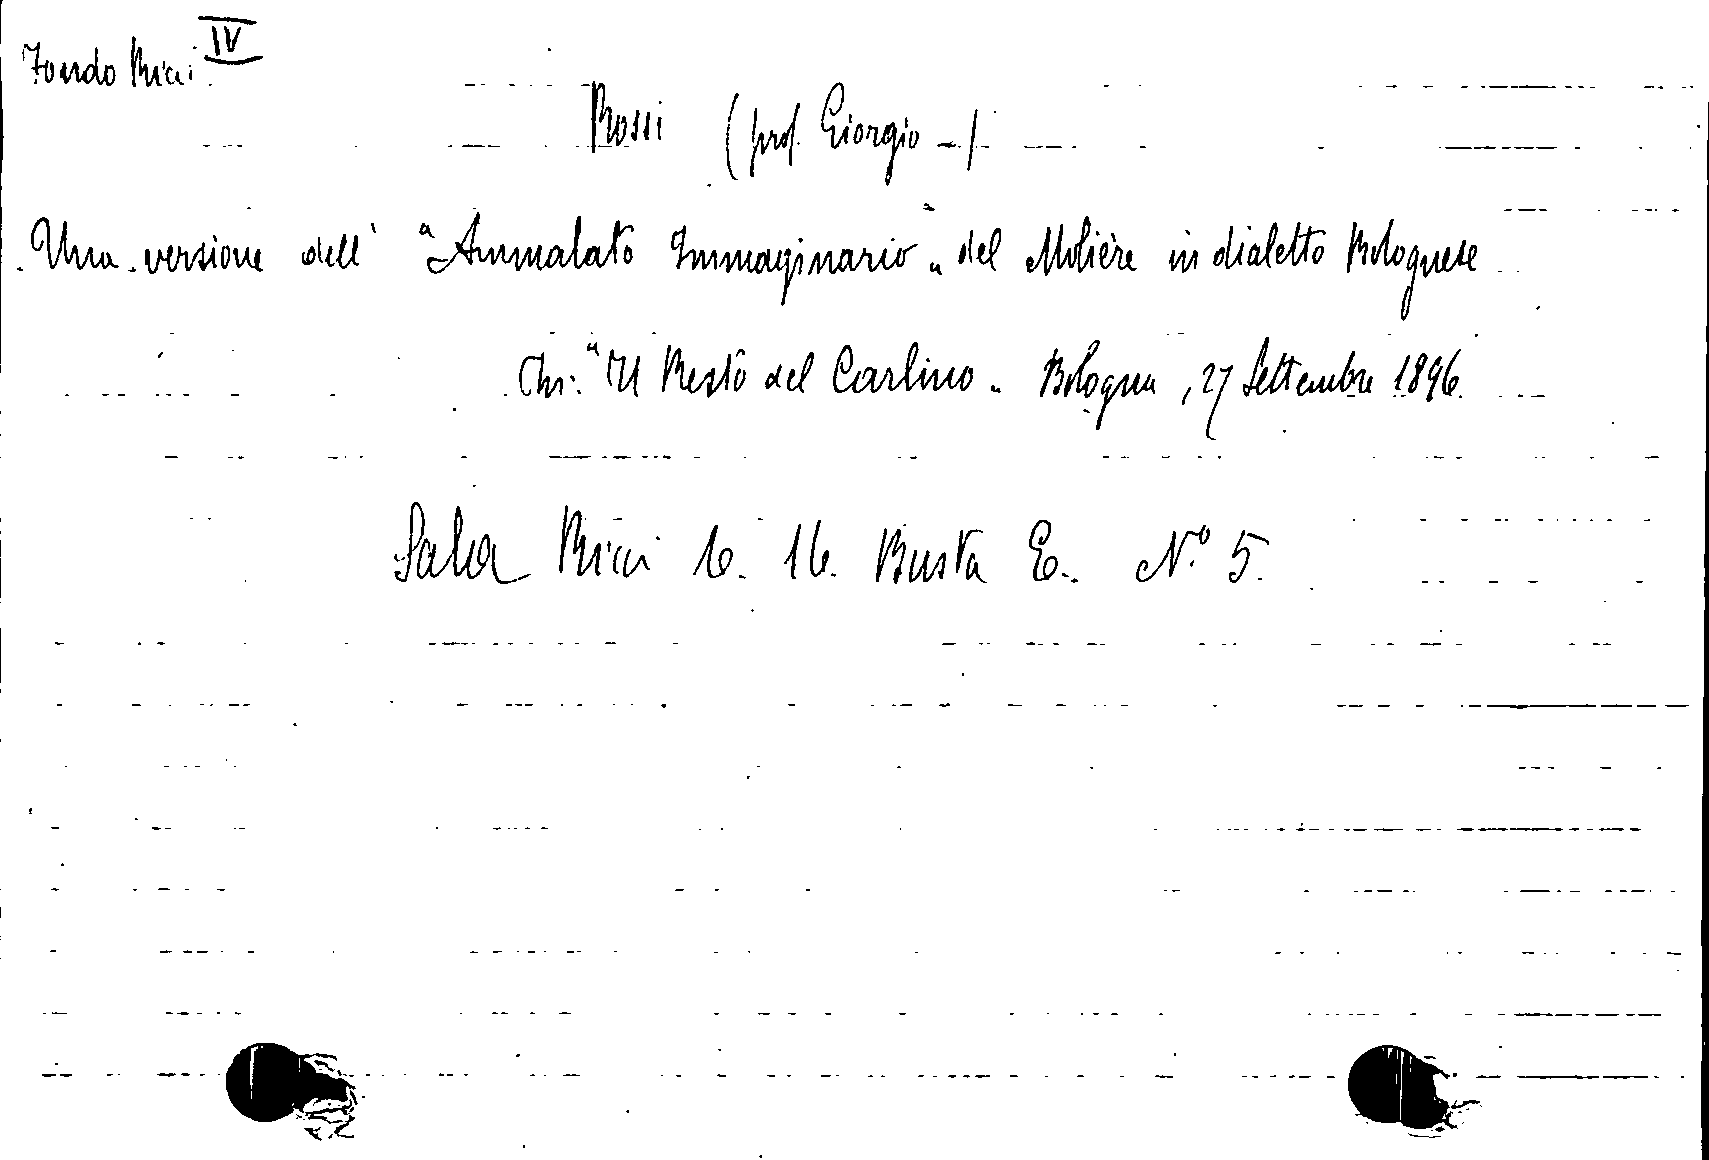 Fondo Ricci IV
Rossi (prof. Giorgio -)
Una versione dell' "Ammalato Immaginario" del Molière in dialetto Bolognese
In: "Il Resto del Carlino" Bologna, 27 Settembre 1896.
Sala Ricci 16. Busta E. N.º 5.